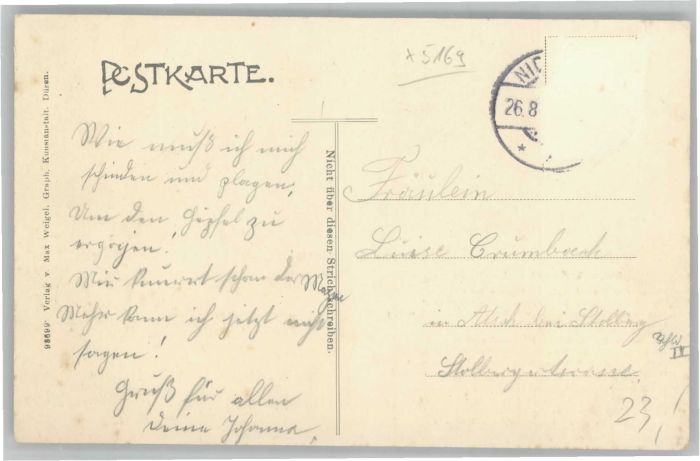 POSTKARTE.
x 5169
NID
26.8
98699 Verlag v. Max Weigel, Graph. Kunstanstalt, Düren.
Nicht über diesen Strich schreiben.
Wie muß ich mich
schinden und plagen,
Um den Gipfel zu
Mir knurrt schon der Magen
Mehr kann ich jetzt nicht
sagen!
Gruß für allen
Deine Johanna.
Fräulein
Luise Crumbach
in Atsch bei Stolberg
Rhld
Stolbergerstrasse
23,